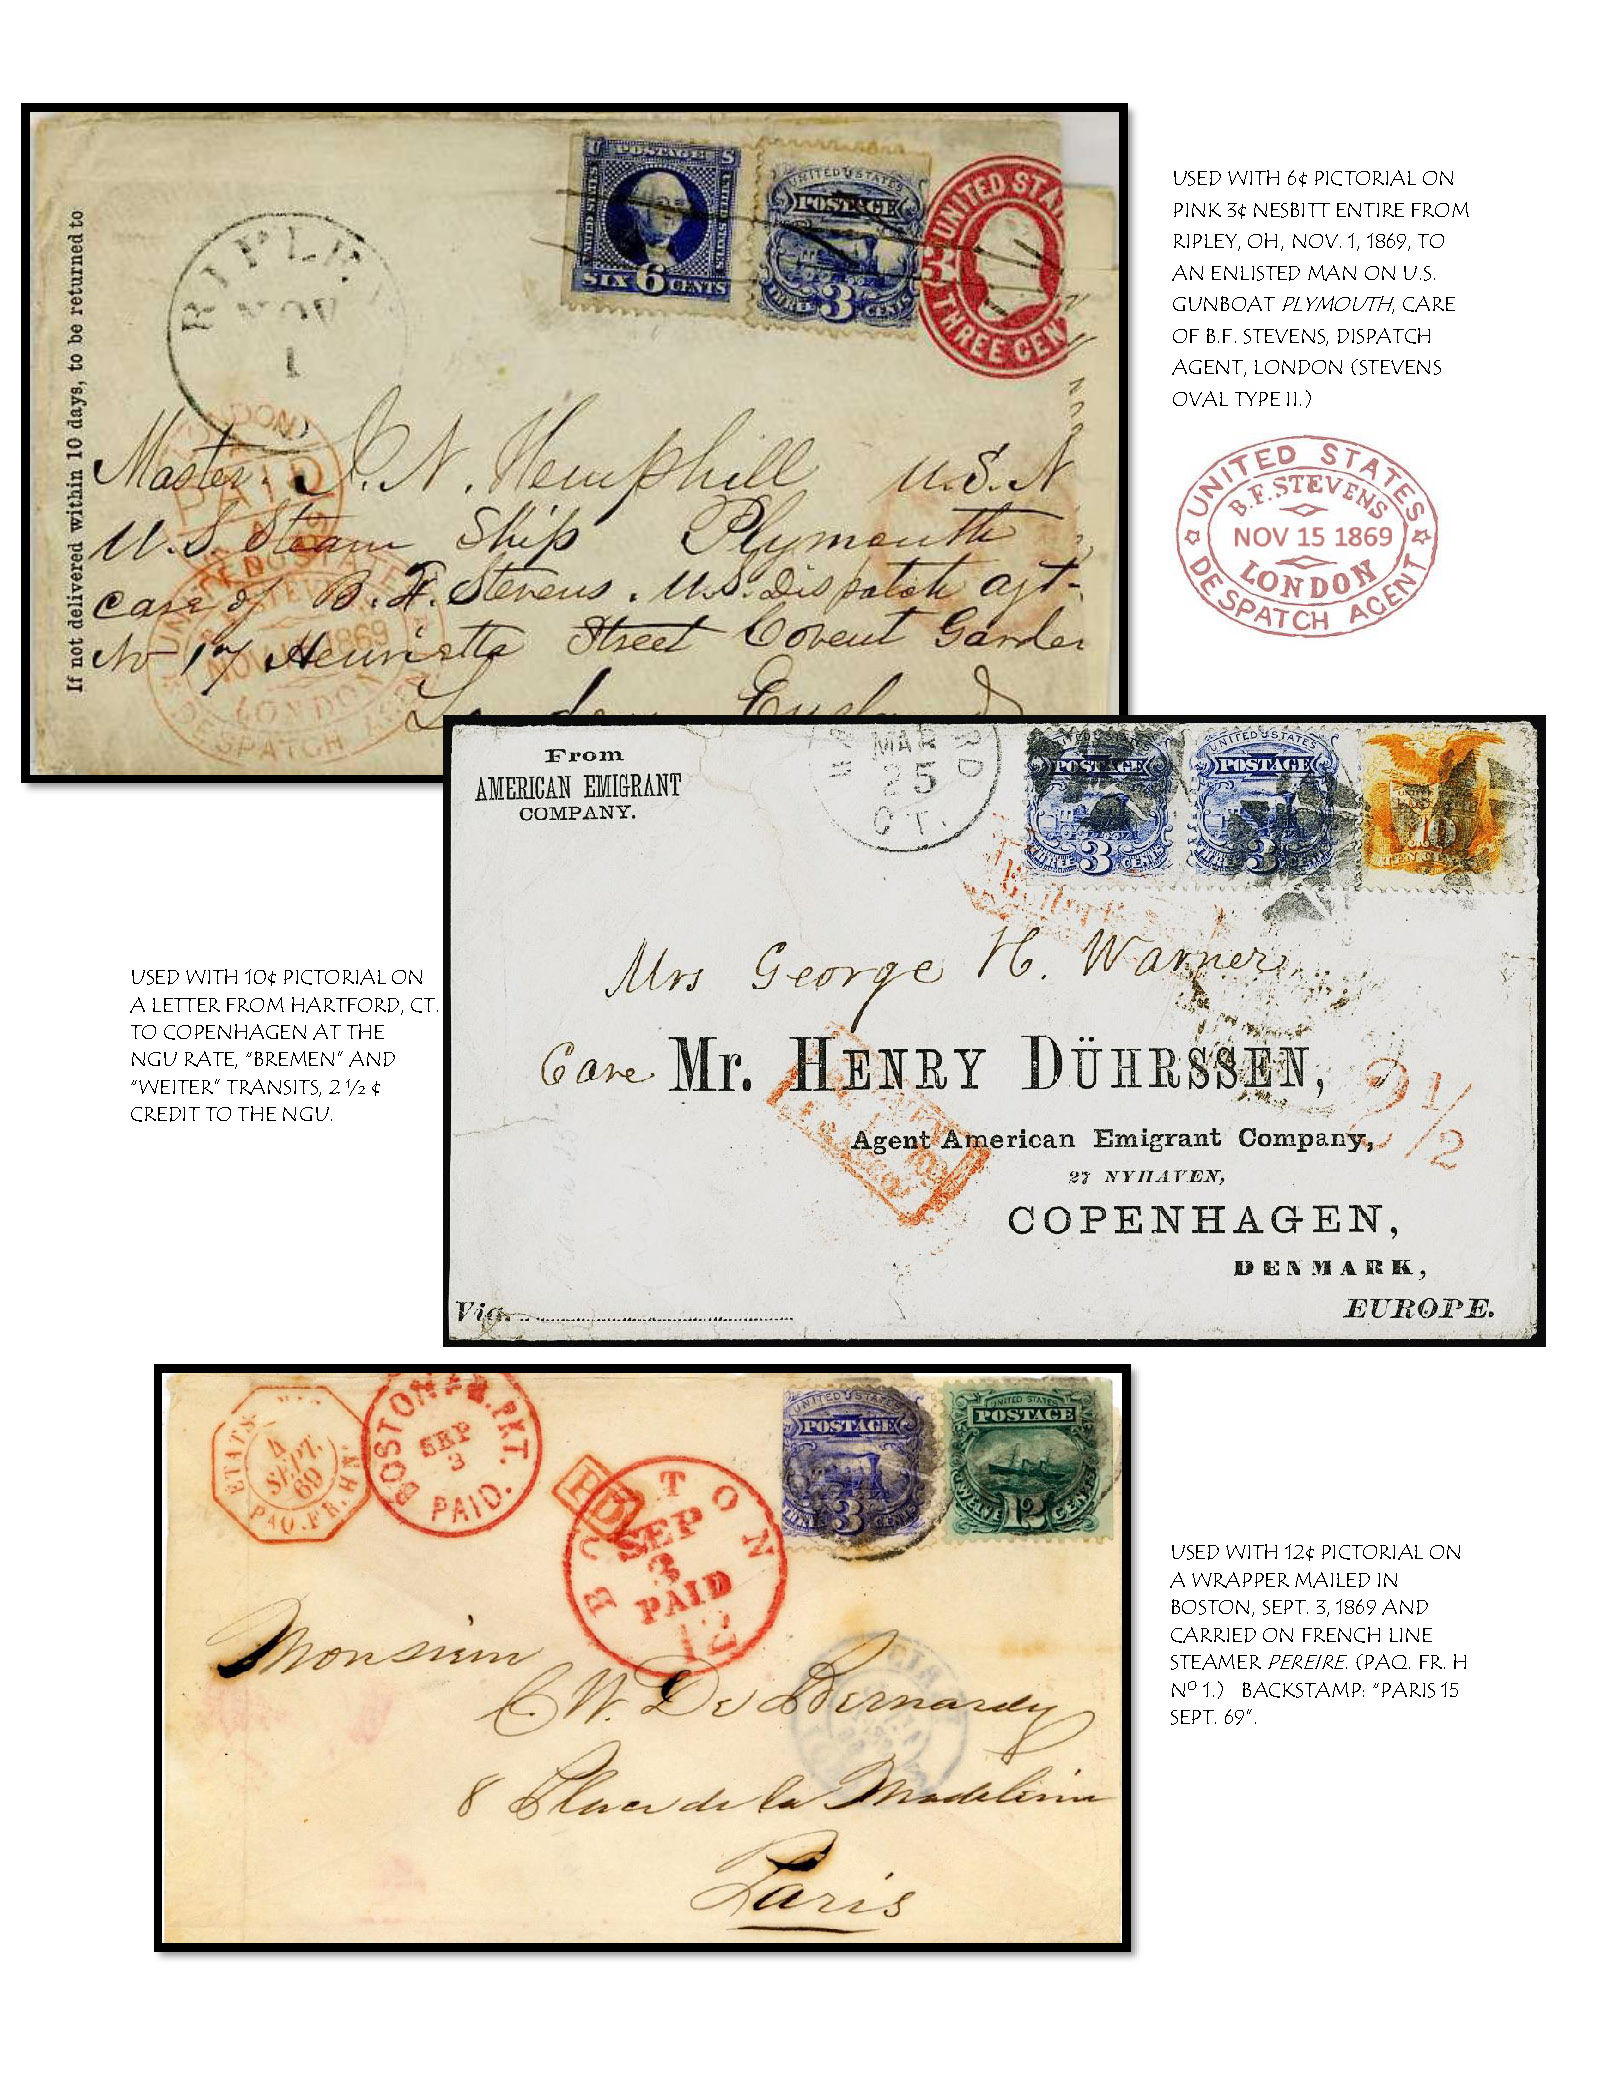 USED WITH 6¢ PICTORIAL ON
PINK 3¢ NESBITT ENTIRE FROM
RIPLEY, OH, NOV. 1, 1869, TO
AN ENLISTED MAN ON U.S.
GUNBOAT PLYMOUTH, CARE
OF B.F. STEVENS, DISPATCH
AGENT, LONDON (STEVENS
OVAL TYPE II.)
UNITED STATES
B.F. STEVENS
NOV 15 1869
LONDON
DESPATCH AGENT
If not delivered within 10 days, to be returned to
RIPLE
NOV
1
U POSTAGE S
UNITED STATES
SIX 6 CENTS
UNITED STATES
POSTAGE
THREE 3 CENTS
UNITED STA
THREE CEN
PAID
Master. J. N. Hemphill U.S.N
U.S Steam Ship Plymouth
care of B. F. Stevens. U.S. Dispatch agt-
No 17 Henrietta Street Covent Garden
London England
1869
LONDON
DESPATCH AGENT
From
AMERICAN EMIGRANT
COMPANY.
MAR
25
CT.
UNITED STATES
POSTAGE
THREE 3 CENTS
UNITED STATES
POSTAGE
THREE 3 CENTS
10
TEN CEN
Mrs George H. Warner,
Care Mr. HENRY DÜHRSSEN,
2 1/2
Agent American Emigrant Company,
27 NYHAVEN,
COPENHAGEN,
DENMARK,
EUROPE.
Via.
USED WITH 10¢ PICTORIAL ON
A LETTER FROM HARTFORD, CT.
TO COPENHAGEN AT THE
NGU RATE, "BREMEN" AND
"WEITER" TRANSITS, 2 ½ ¢
CREDIT TO THE NGU.
ETATS
4
SEPT.
69
PAQ. FR. H Nº
BOSTON BR. PKT.
SEP
3
PAID.
PD
BOSTON
SEP
3
PAID
12
UNITED STATES
POSTAGE
3 CENTS
UNITED STATES
POSTAGE
TWELVE 12 CENTS
Monsieur
C. W. De Bernardy
8 Place de la Madeleine
Paris
USED WITH 12¢ PICTORIAL ON
A WRAPPER MAILED IN
BOSTON, SEPT. 3, 1869 AND
CARRIED ON FRENCH LINE
STEAMER PEREIRE. (PAQ. FR. H
Nº 1.) BACKSTAMP: "PARIS 15
SEPT. 69".